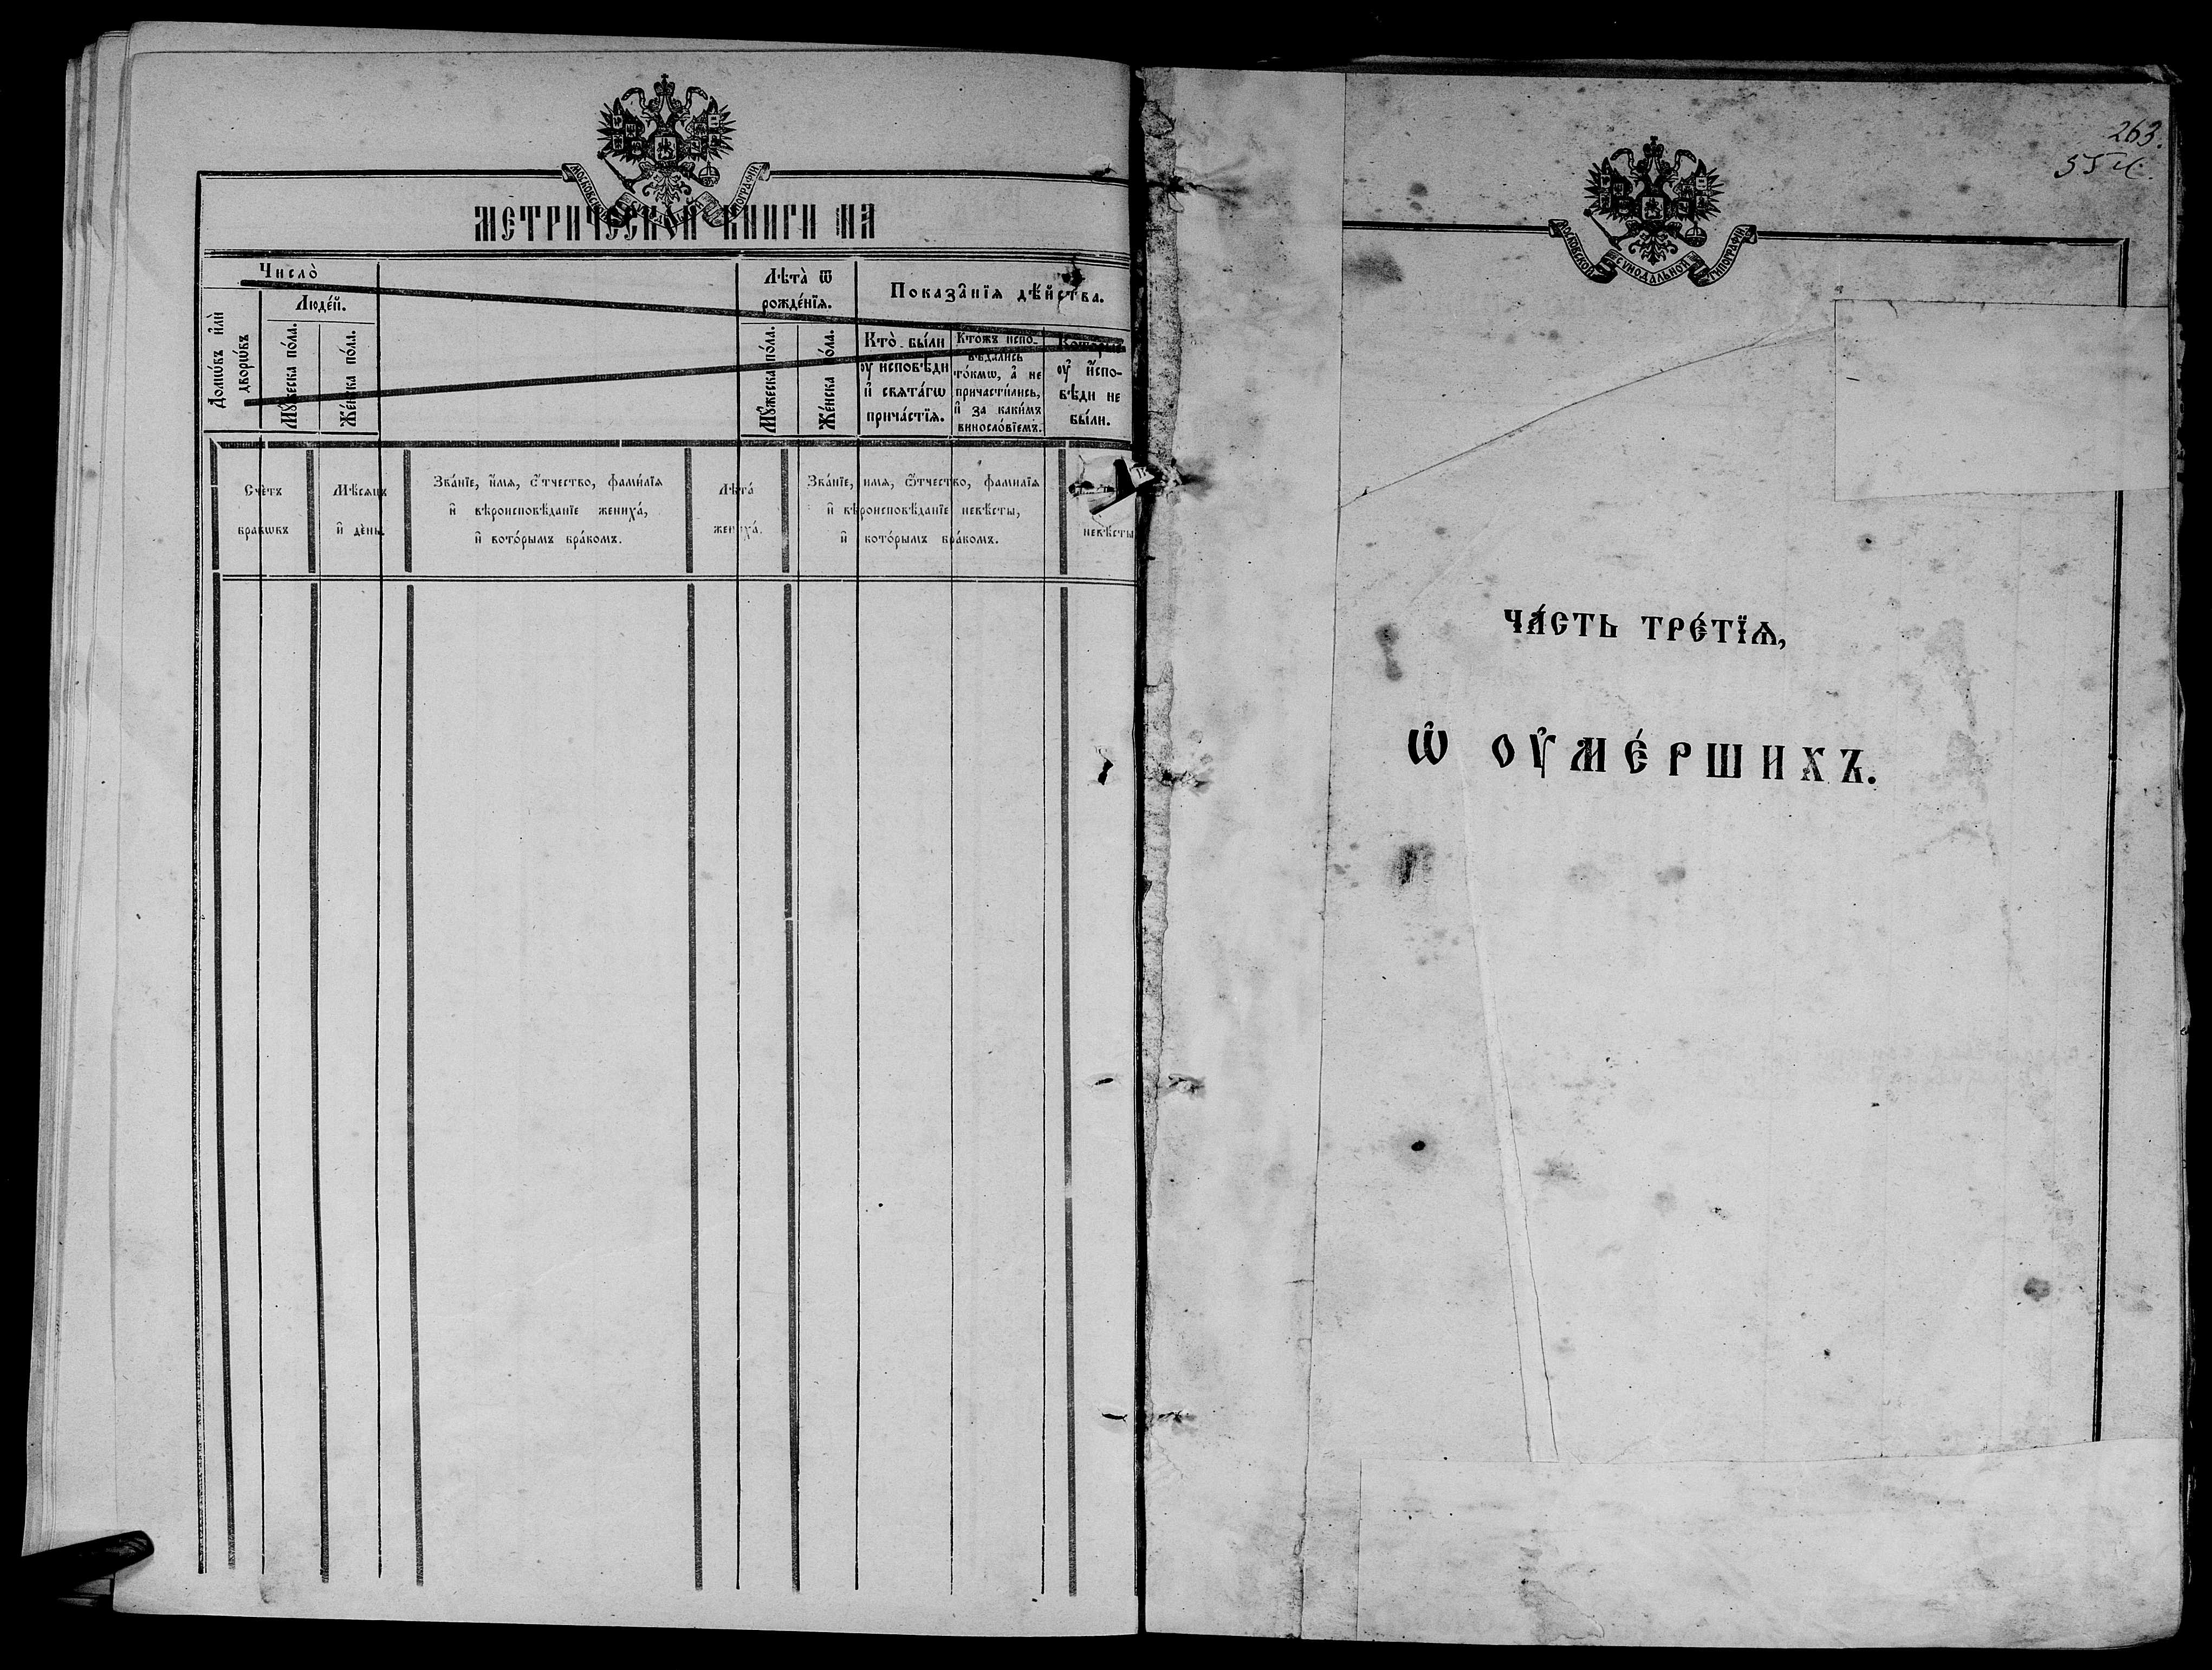 МОСКОВСКОЙ СУНОДАЛЬНОЙ ТИПОГРАФІИ
МЕТРИЧЕСКОЙ КНИГИ НА
Число̀
Домѡ́въ и҆лѝ дворѡ́въ
Люде́й.
Мꙋ́жеска по́ла.
Же́нска по́ла.
Лѣта̀ ѿ рожде́нїѧ.
Мꙋ́жеска по́ла.
Же́нска по́ла.
Показа̑нїѧ дѣ́йства.
Кто̀ бы́ли
оу҆ и҆сповѣди
и҆ свѧта́гѡ
прича́стїѧ.
Кто́жъ испо-
вѣдались
то́кмѡ, а҆ не
причасти́лись,
и҆ за каки́мъ
виносло́вїемъ.
Которые
оу҆ и҆спо-
вѣди не
бы́ли.
Сче́тъ
бракѡвъ
Мѣ́сѧцъ
и҆ де́нь.
Зва́нїе, и҆́мѧ, ѻ҆́тчество, фами́лїѧ
и҆ вѣроисповѣ́данїе жениха́,
и҆ кото́рымъ бра́комъ.
Лѣта́
жениха́.
Зва́нїе, имѧ, ѻ҆́тчество, фамилїѧ
и҆ вѣроисповѣ́данїе невѣ́сты,
и҆ кото́рымъ бра́комъ.
невѣ́сты
263.
МОСКОВСКОЙ СУНОДАЛЬНОЙ ТИПОГРАФІИ
ЧА́СТЬ ТРЕ́ТЇѦ,
Ѽ ОУ҆МЕ́РШИХЪ.